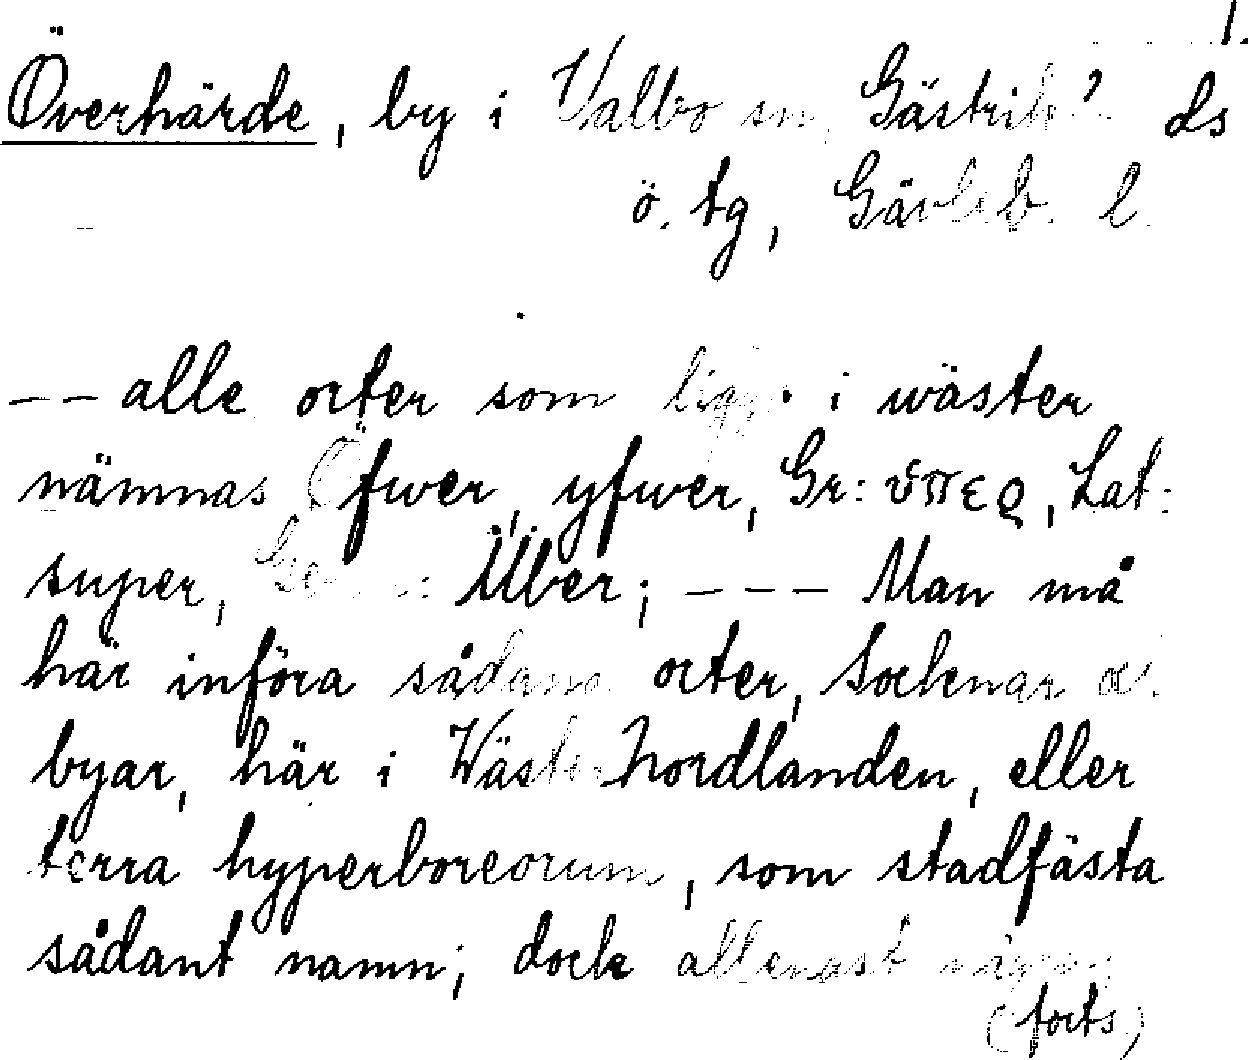 1.
Överhärde, by i Valbo sn, Gästrikl:s ds
ö. tg, Gävleb. l.
-- alle orter som ligga i wäster
nämnas Öfwer, yfwer, Gr: ὑπερ, Lat:
super, Germ: Über; --- Man må
här införa sådana orter, Socknar och
byar, här i WästerNordlanden, eller
terra hyperboreorum, som stadfästa
sådant namn; dock allenast någon
(forts)